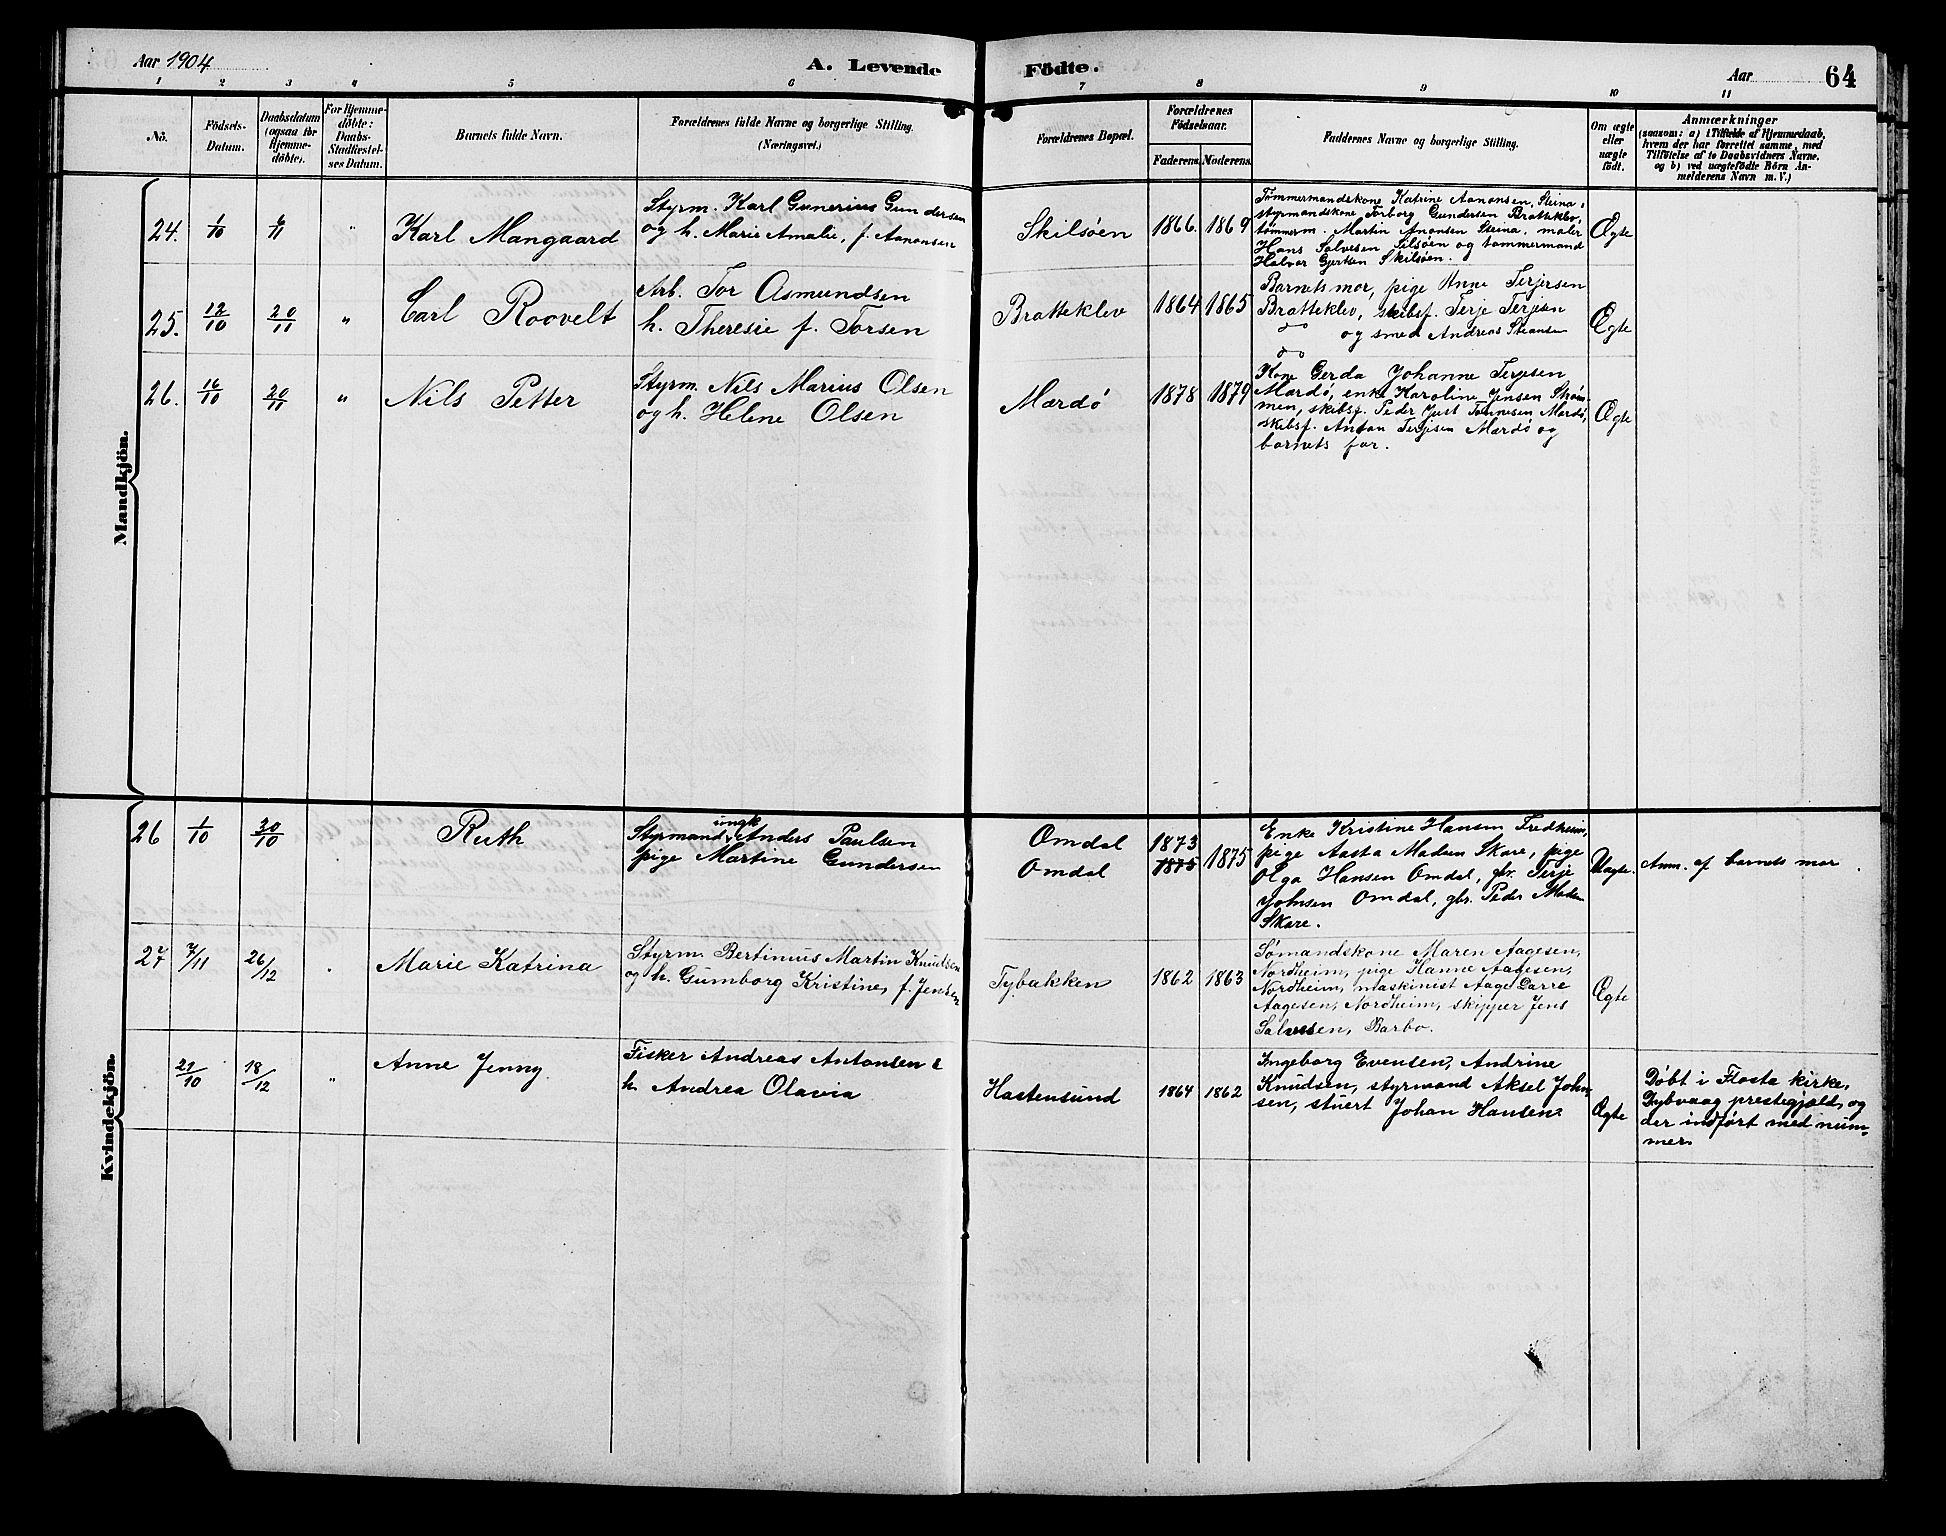 Aar 1904
A. Levende Födte.
Aar 64
1 2 3 4 5 6 7 8 9 10 11
No.
Födsels-
Datum.
Daabsdatum
(ogsaa for
Hjemme-
döbte).
For Hjemme-
döbte:
Daabs-
Stadfæstel-
ses Datum.
Barnets fulde Navn.
Forældrenes fulde Navne og borgerlige Stilling.
(Næringsvei.)
Forældrenes Bopæl.
Forældrenes
Födselsaar.
Faderens. Moderens.
Faddernes Navne og borgerlige Stilling.
Om ægte
eller
uægte
födt.
Anmærkninger
(saasom: a) i Tilfælde af Hjemmedaab,
hvem der har forrettet samme, med
Tilföielse af to Daabsvidners Navne,
og b) ved uægtefödte Börn An-
melderens Navn m. V.)
Mandkjön.
24. 1/10 6/11 "
Karl Mangaard
Styrm. Karl Gunerius Gundersen
og h. Marie Amalie, f. Aanonsen
Skilsøen
1866. 1869
Tømmermandskone Katrine Aanonsen, Steina,
styrmandskone Torborg Gundersen Bratteklev,
tømmerm. Martin Anonsen Steina, maler
Hans Salvesen Silsøen og tømmermand
Halvor Gjertsen Skilsøen.
Ægte
25. 12/10 20/11 "
Carl Roovelt
Arb. Tor Osmundsen
h. Theresie f. Torsen
Bratteklev
1864 1865
Barnets mor, pige Anne Terjesen
Bratteklev, skibsf. Terje Terjesen
og smed Andreas Steansen
Ægte
26. 16/10 20/11 "
Nils Petter
Styrm. Nils Marius Olsen
og h. Helene Olsen
Mærdø
1878 1879
Kone Gerda Johanne Terjesen
Mærdø, enke Karoline Jensen Strøm-
men, skibsf. Peder Just Tønnesen Mærdø,
skibsf. Anton Terjesen Mærdø og
barnets far.
Ægte
Kvindekjön.
26 1/10 30/10
Ruth
ungk
Styrmand, Anders Paulsen
pige Martine Gundersen
Omdal
Omdal
1873
1875 1875
Enke Kristine Hansen Fredheim,
pige Aasta Madsen Skare, pige
Olga Hansen Omdal, gbr. Terje
Johnsen Omdal, gbr. Peder Madsen
Skare.
Uægte.
Anm. af barnets mor
27 7/11 26/12 "
Marie Katrina
Styrm. Bertinius Martin Knudsen
og h. Gumborg Kristine, f. Jensen
Tybakken
1862 1863
Sømandskone Maren Aagesen,
Nordheim, pige Hanne Aagesen,
Nordheim, maskinist Aage Darre
Aagesen, Nordheim, skipper Jens
Salvesen, Barbo.
Ægte
21/10 18/12 "
Anne Jenny
Fisker Andreas Antonsen &
h. Andrea Olavia
Hastensund
1864 1862
Ingeborg Evensen, Andrine
Knudsen, styrmand Aksel John-
sen, stuert Johan Hansen.
Ægte
Døbt i Flosta kirke,
Dybvaag prestegjæld, og
der indført med num-
mer.